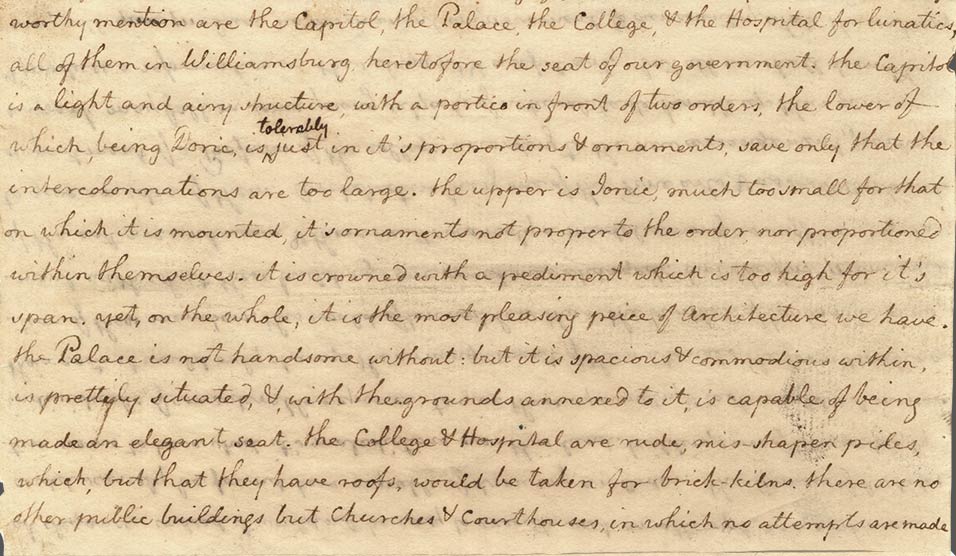 worthy mention are the Capitol, the Palace, the College, & the Hospital for lunatics,
all of them in Williamsburg, heretofore the seat of our government. the Capitol
is a light and airy structure, with a portico in front of two orders, the lower of
which, being Doric, is tolerably just in it's proportions & ornaments, save only that the
intercolonnations are too large. the upper is Ionic, much too small for that
on which it is mounted, it's ornaments not proper to the order, nor proportioned
within themselves. it is crowned with a pediment which is too high for it's
span. yet, on the whole, it is the most pleasing peice of Architecture we have.
the Palace is not handsome without: but it is spacious & commodious within,
is prettily situated, &, with the grounds annexed to it, is capable of being
made an elegant seat. the College & Hospital are rude, mis-shapen piles,
which, but that they have roofs, would be taken for brick-kilns. there are no
other public buildings but Churches & Courthouses, in which no attempts are made